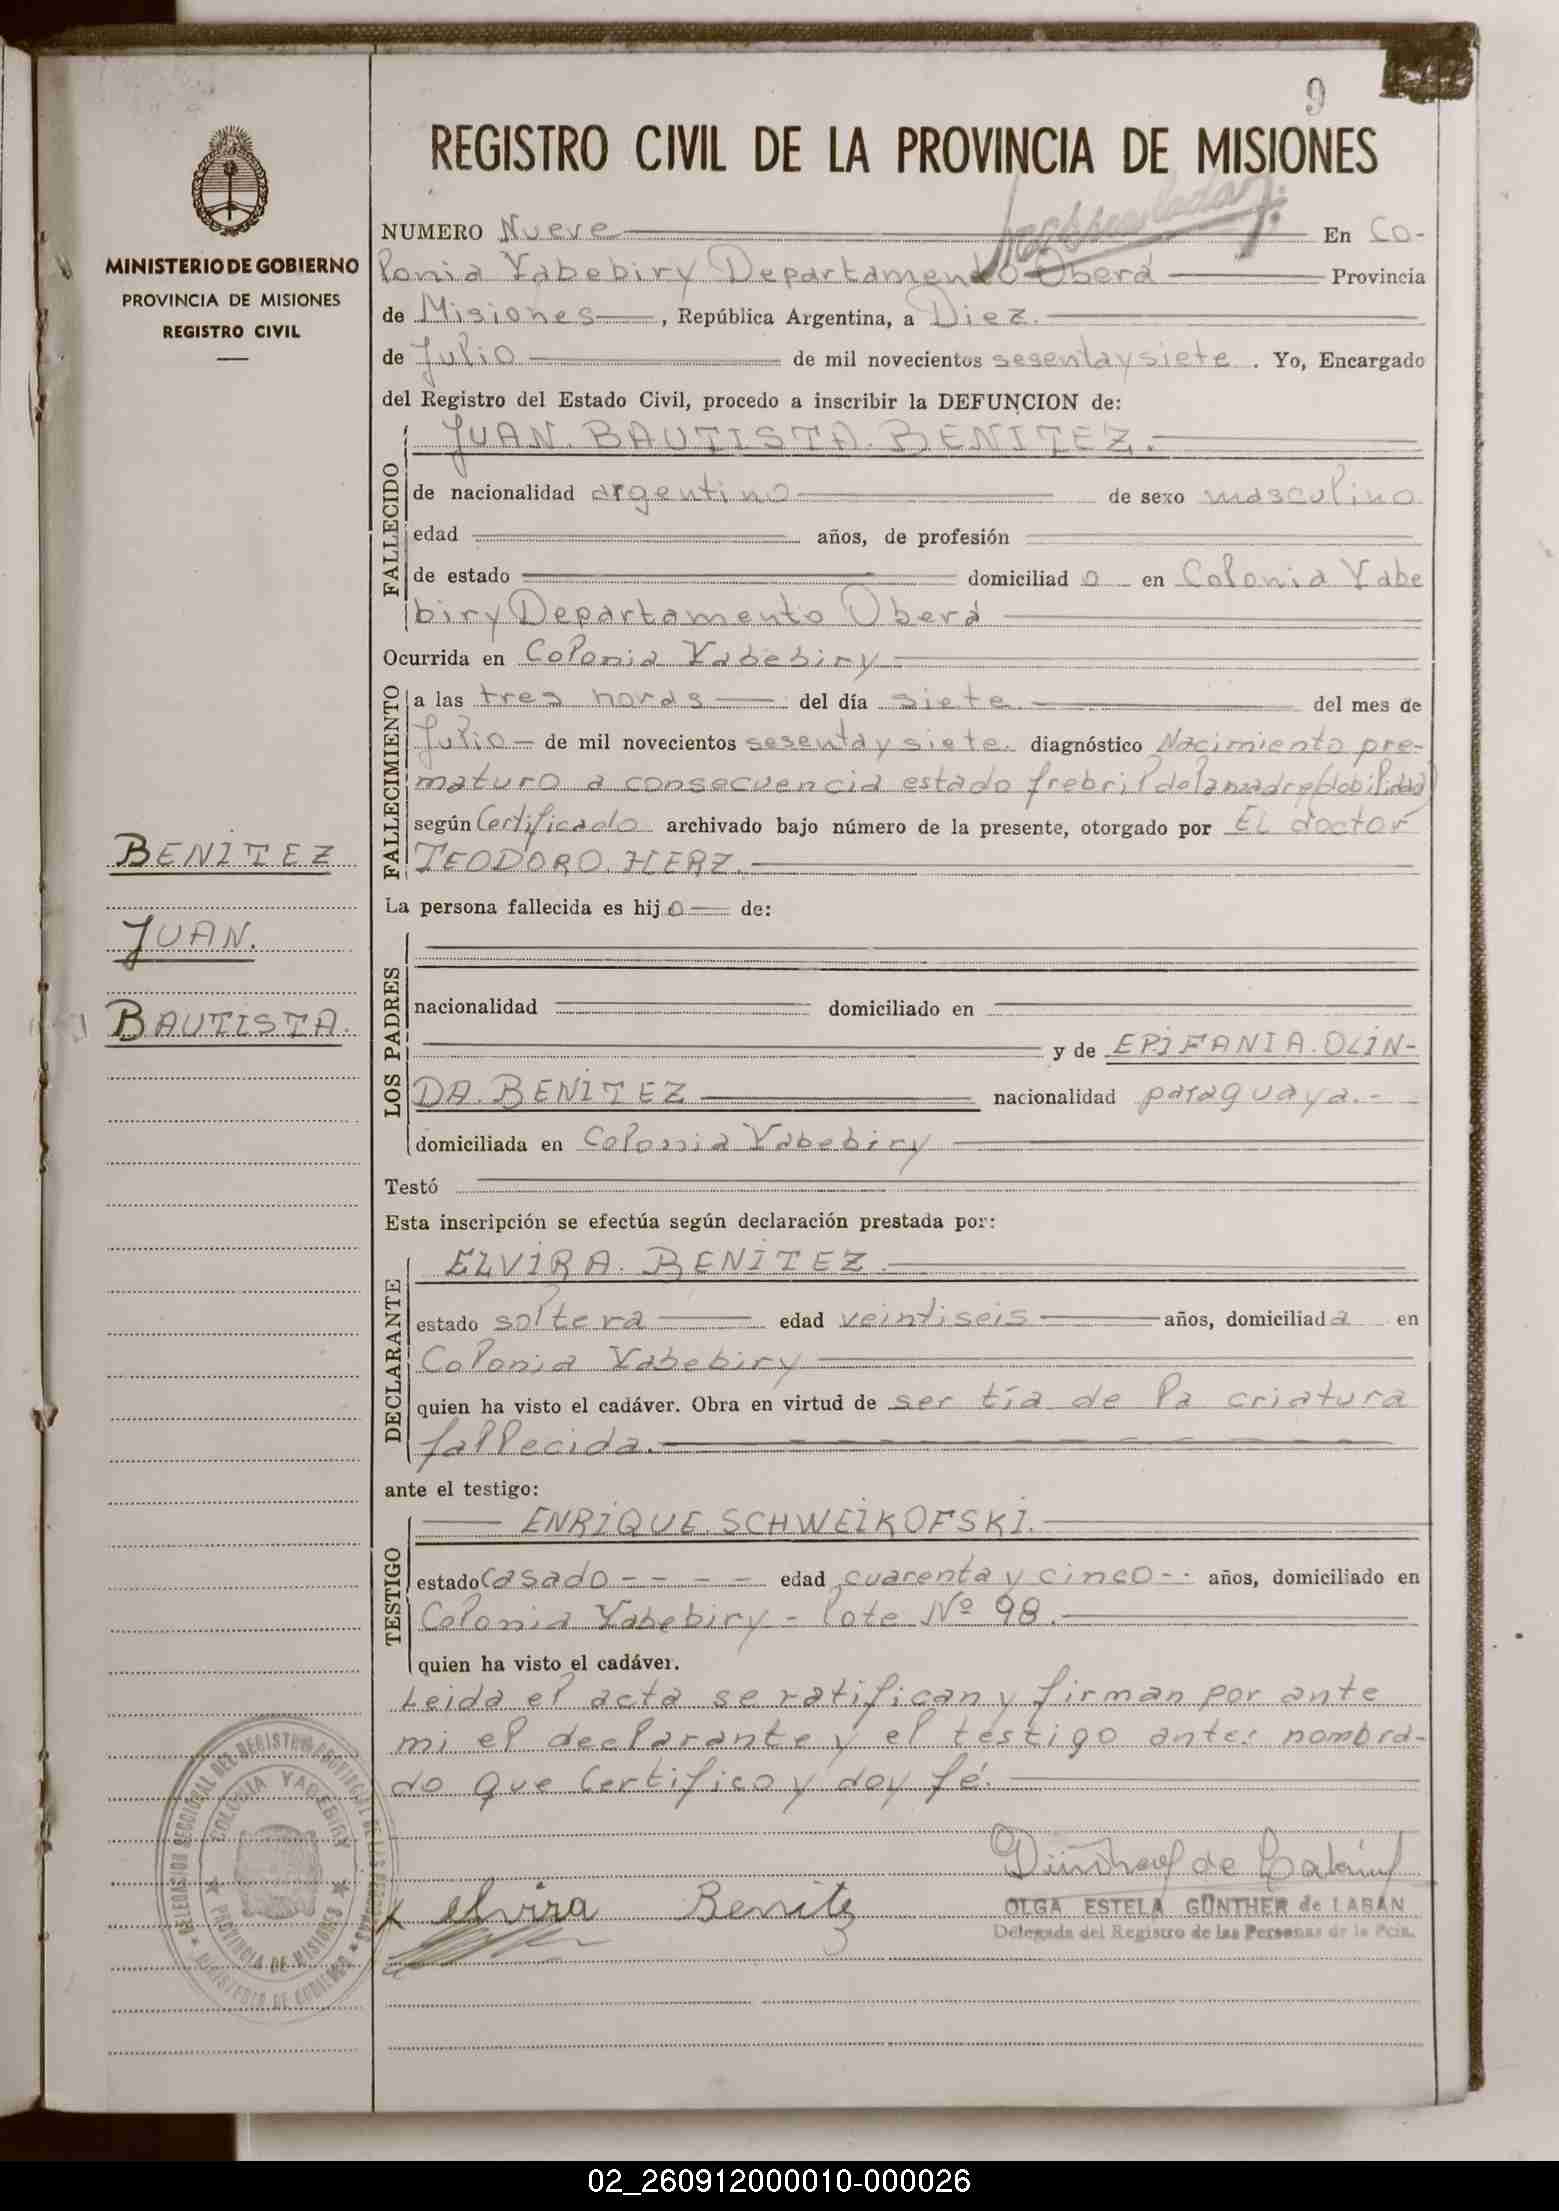 9
REGISTRO CIVIL DE LA PROVINCIA DE MISIONES
MINISTERIO DE GOBIERNO
PROVINCIA DE MISIONES
REGISTRO CIVIL
BENITEZ
JUAN.
BAUTISTA.
NUMERO Nueve En Co-
lonia Yabebiry Departamento Oberá Provincia
de Misiones, República Argentina, a Diez.
de Julio de mil novecientos sesenta y siete. Yo, Encargado
del Registro del Estado Civil, procedo a inscribir la DEFUNCION de:
JUAN. BAUTISTA. BENITEZ.
FALLECIDO
de nacionalidad argentino de sexo masculino
edad años, de profesión
de estado domiciliado en Colonia Yabe
biry Departamento Oberá
Ocurrida en Colonia Yabebiry
FALLECIMIENTO
a las tres horas del día siete. del mes de
Julio de mil novecientos sesenta y siete. diagnóstico Nacimiento pre-
maturo a consecuencia estado frebril de la madre (debilidad)
según Certificado archivado bajo número de la presente, otorgado por El doctor
TEODORO. HERZ.
La persona fallecida es hijo de:
LOS PADRES
nacionalidad domiciliado en
y de EPIFANIA. OLIN-
DA. BENITEZ nacionalidad paraguaya.-
domiciliada en Colonia Yabebiry
Testó
Esta inscripción se efectúa según declaración prestada por:
ELVIRA. BENITEZ.
DECLARANTE
estado soltera edad veintiseis años, domiciliada en
Colonia Yabebiry
quien ha visto el cadáver. Obra en virtud de ser tía de la criatura
fallecida.
ante el testigo:
ENRIQUE. SCHWEIKOFSKI.
TESTIGO
estado Casado - - - - edad cuarenta y cinco - - años, domiciliado en
Colonia Yabebiry - lote Nº 98.
quien ha visto el cadáver.
Leida el acta se ratifican y firman por ante
mi el declarante y el testigo antes nombra-
do que Certifico y doy fé.
COLONIA YABEBIRY
PROVINCIA DE MISIONES
MINISTERIO DE GOBIERNO
x elvira Benitez
OLGA ESTELA GÜNTHER de LABAN
Delegada del Registro de las Personas de la Pcia.
02_260912000010-000026